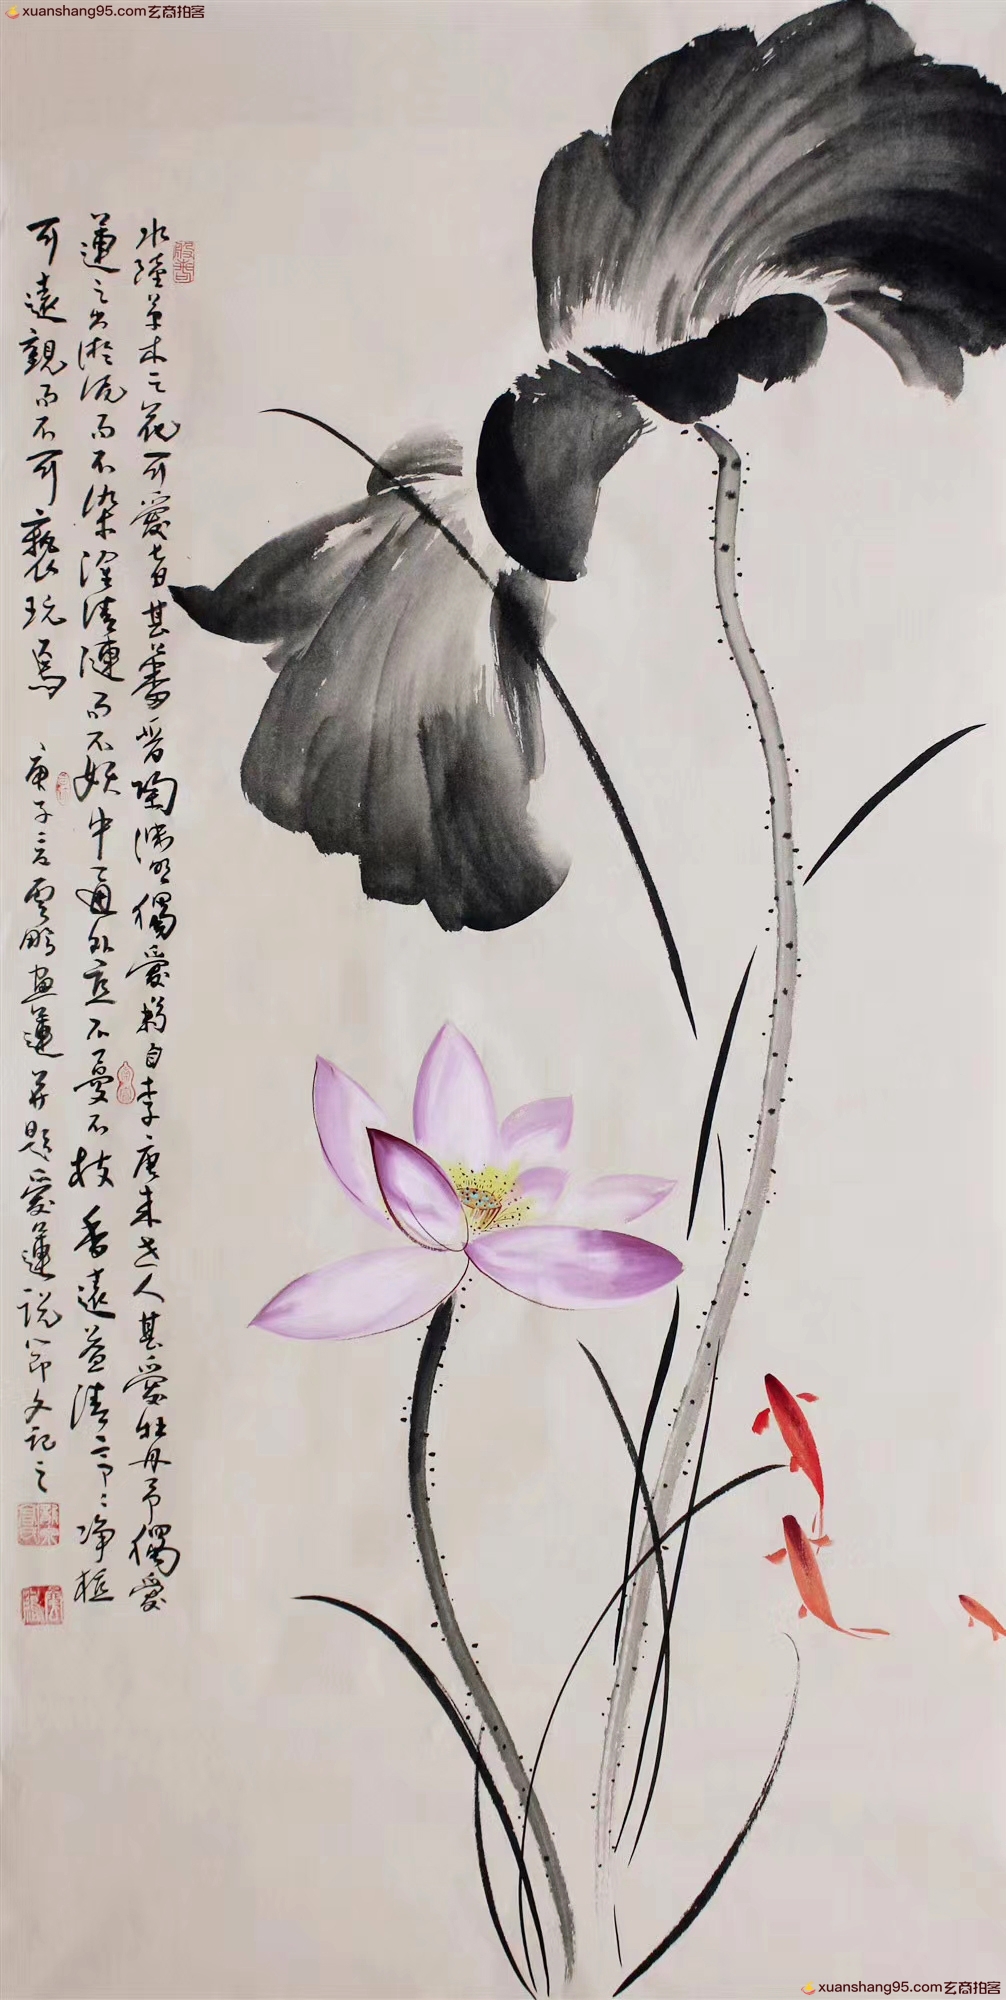 xuanshang95.com玄商拍客
水陸草木之花可愛者甚蕃晉陶淵明獨愛菊自李唐來世人甚愛牡丹予獨愛
蓮之出淤泥而不染濯清漣而不妖中通外直不蔓不枝香遠益清亭々净植
可遠觀而不可褻玩焉 庚子雲鵬畫蓮并題愛蓮説節文記之
xuanshang95.com玄商拍客